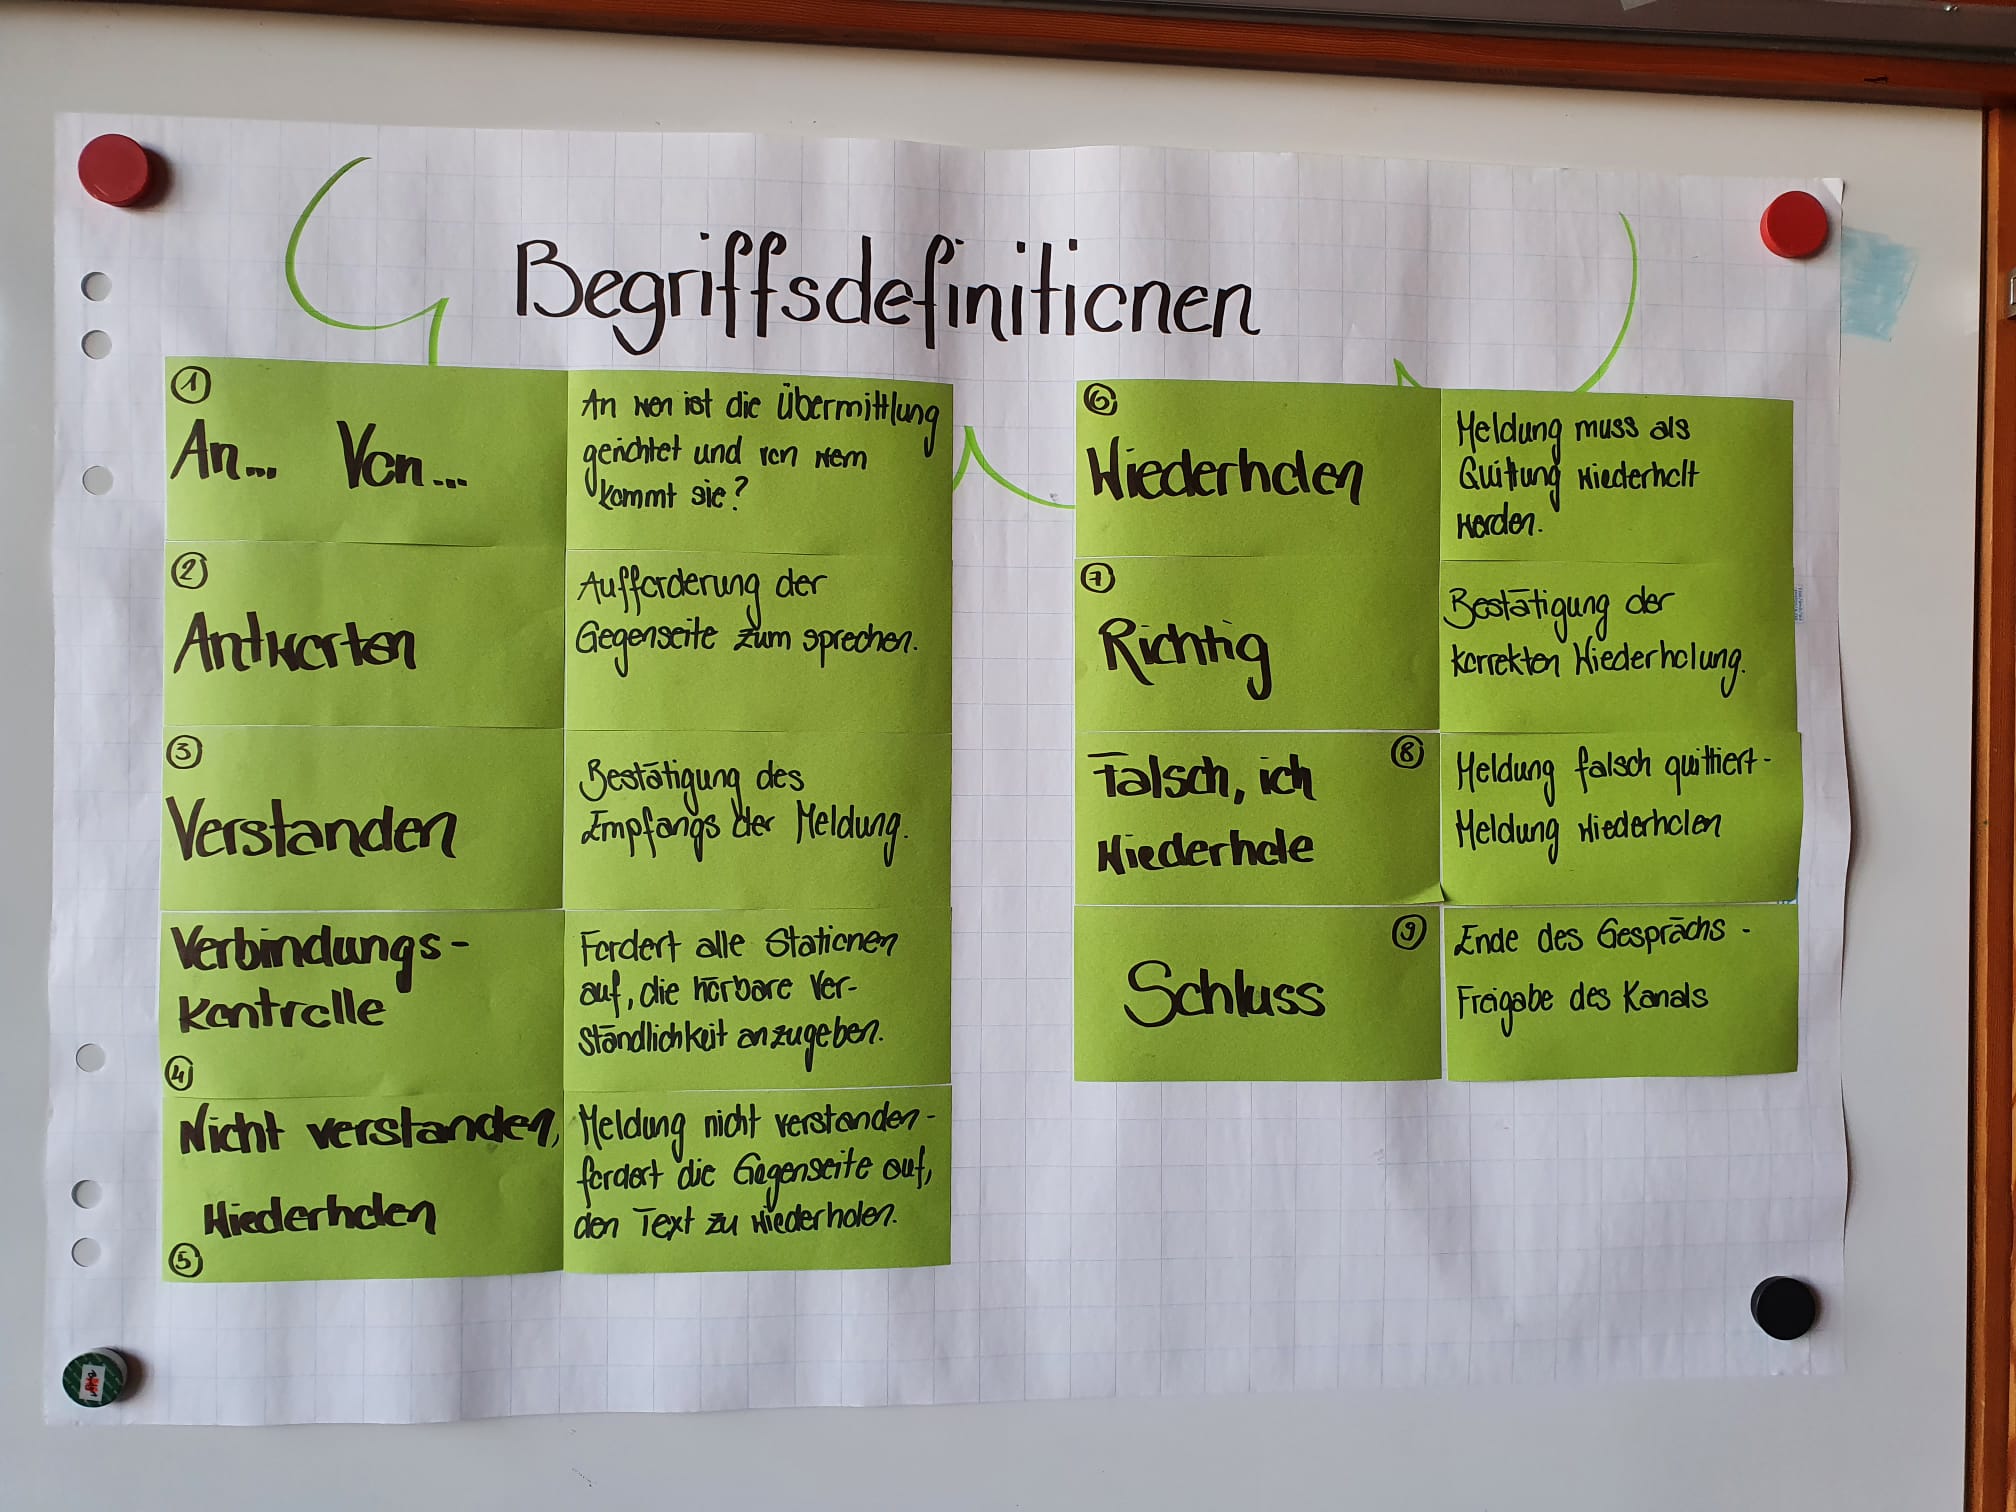 Begriffsdefinitionen
1
An... Von...
An wen ist die Übermittlung
gerichtet und von wem
kommt sie?
2
Antworten
Aufforderung der
Gegenseite zum sprechen.
3
Verstanden
Bestätigung des
Empfangs der Meldung.
Verbindungs-
kontrolle
4
Fordert alle Stationen
auf, die hörbare Ver-
ständlichkeit anzugeben.
Nicht verstanden,
Wiederholen
5
Meldung nicht verstanden -
fordert die Gegenseite auf,
den Text zu wiederholen.
6
Wiederholen
Meldung muss als
Quittung wiederholt
werden.
7
Richtig
Bestätigung der
korrekten Wiederholung.
8
Falsch, ich
Wiederhole
Meldung falsch quittiert -
Meldung wiederholen
9
Schluss
Ende des Gesprächs -
Freigabe des Kanals